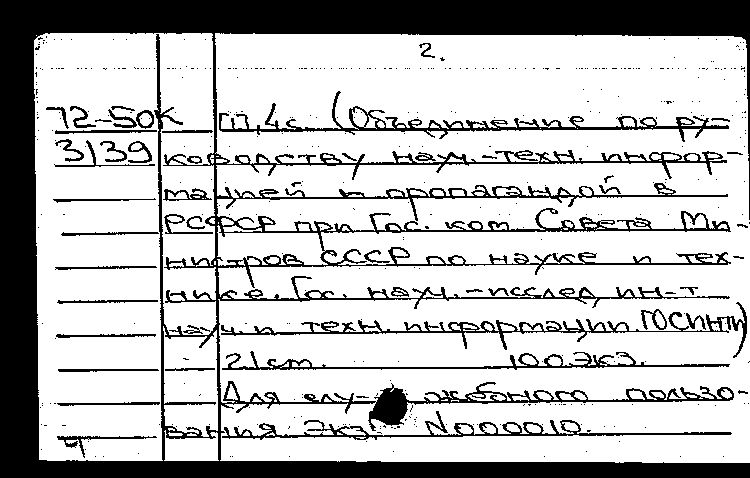 2.
72-50К [1], 4с. (Объединение по ру-
3139 ководству науч.-техн. инфор-
мацией и пропагандой в
РСФСР при Гос. ком. Совета Ми-
нистров СССР по науке и тех-
нике. Гос. науч.-исслед. ин-т
науч. и техн. информации ГОСИНТИ)
21 см. 100 экз.
Для слу- жебного пользо-
вания Экз. N000010.